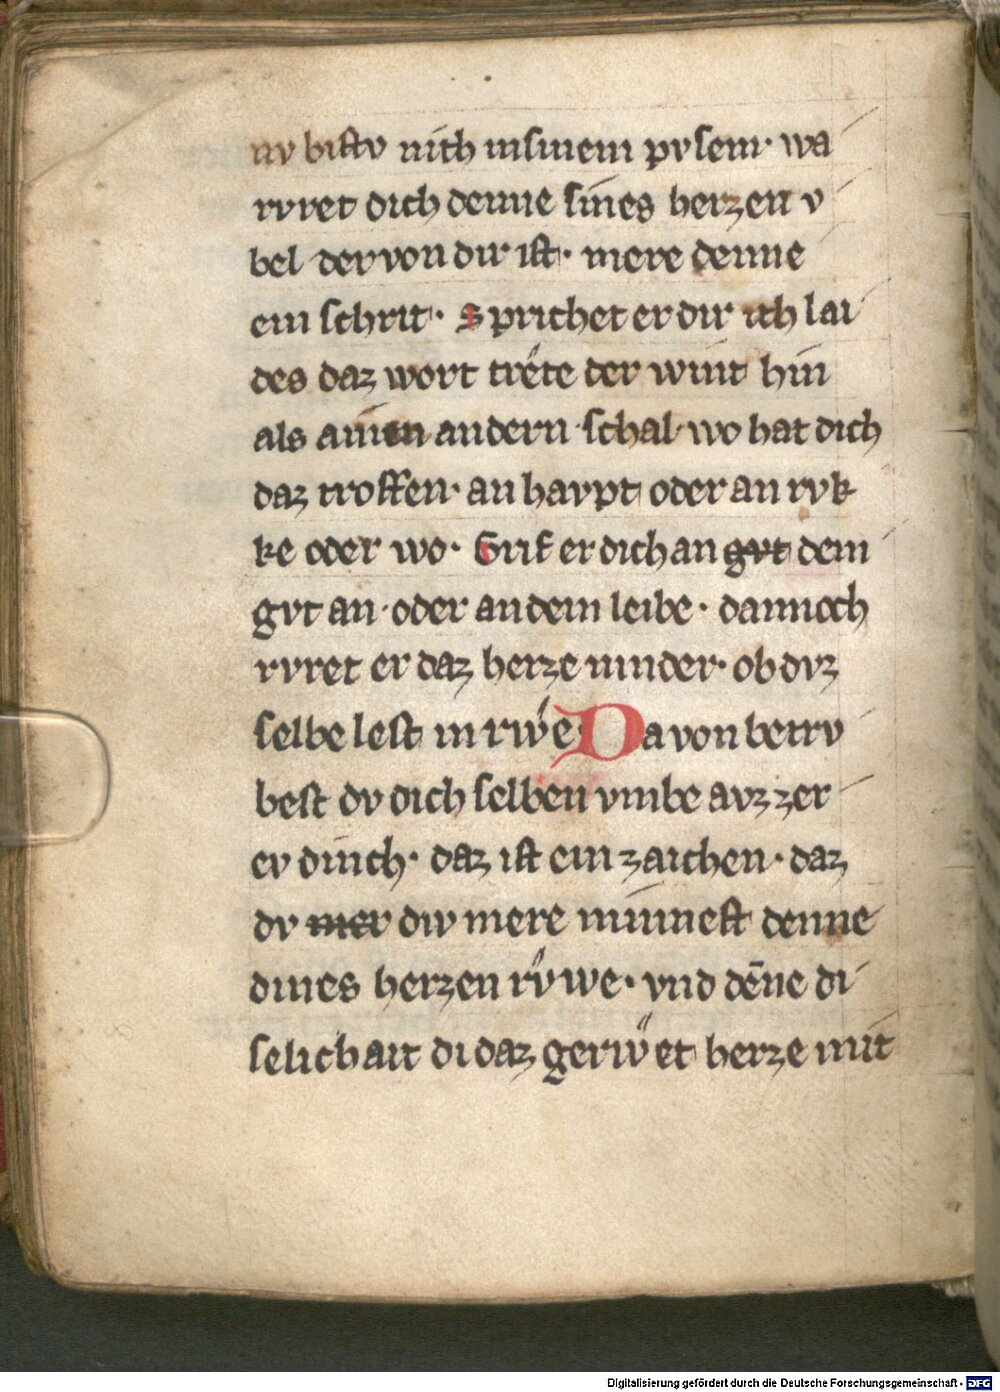 nv bistv nith insinem pvsem· wa
rvret dich denne sines herzen v
bel der von dir ist· mere denne
ein schrit· Sprichet er dir ich lai
des daz wort trete der wint hin
als ainen andern schal· wo hat dich
daz troffen· an havpt oder an rvk
ke oder wo· Grif er dich an gvt dem
gvt an· oder an dem leibe· dannoch
rvret er daz herze minder· ob dvz
selbe lest in rẃe Da von betrv
best dv dich selben vmbe avzzer
ev dinch· daz ist ein zaichen· daz
dv mer div mere minnest denne
dines herzen rv̈we· vnd dēne di
selichait di daz gerẅet herze mit
Digitalisierung gefördert durch die Deutsche Forschungsgemeinschaft - DFG